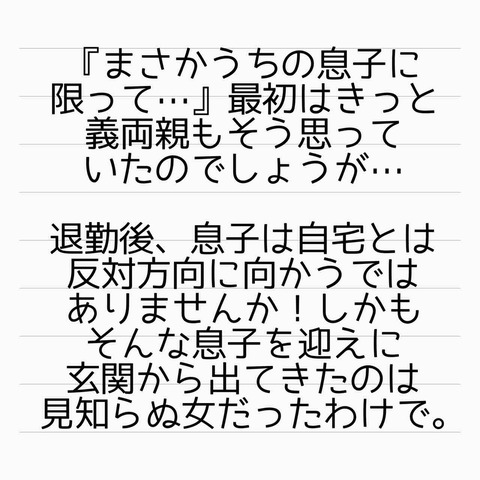 『まさかうちの息子に
限って…』最初はきっと
義両親もそう思って
いたのでしょうが…
退勤後、息子は自宅とは
反対方向に向かうでは
ありませんか！しかも
そんな息子を迎えに
玄関から出てきたのは
見知らぬ女だったわけで。